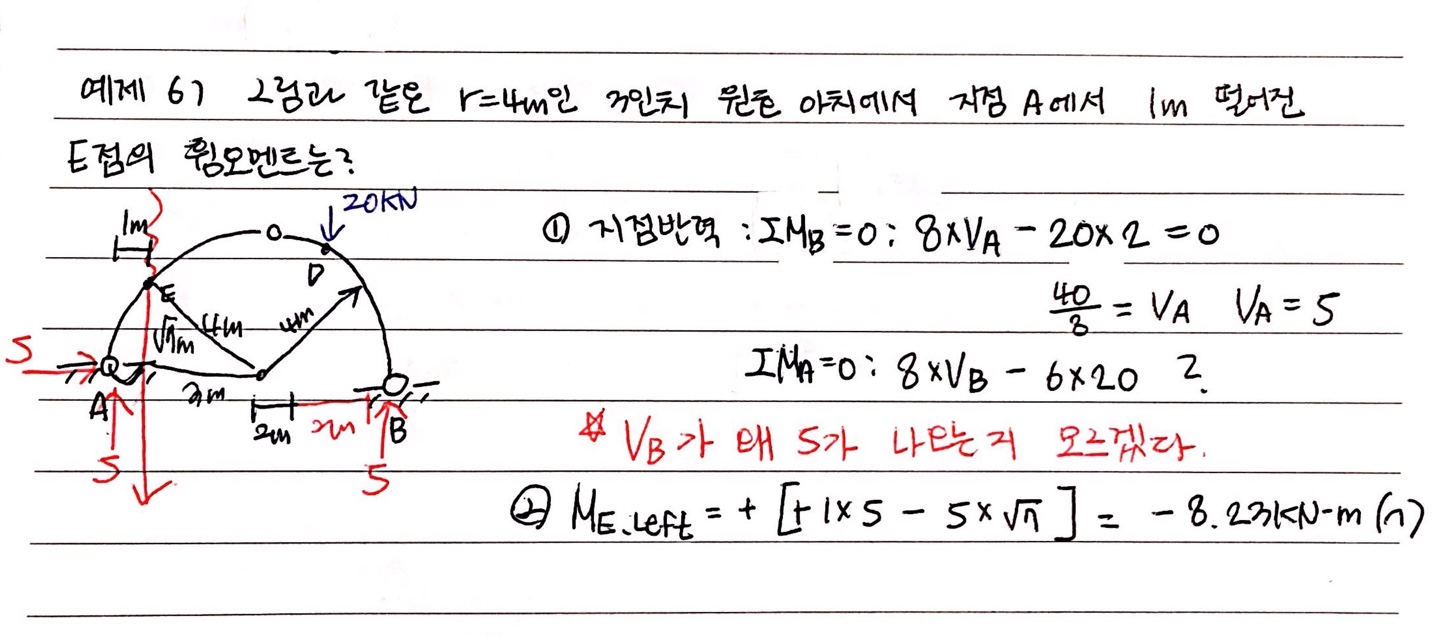 예제 67 그림과 같은 r=4m인 3힌지 원호 아치에서 지점 A에서 1m 떨어진
E점의 휨모멘트는?
1m
20KN
D
E
4m
4m
√7m
5
A
3m
2m
2m
B
5
5
① 지점반력 : ΣMB=0 : 8×VA - 20×2 = 0
40/8 = VA VA = 5
ΣMA=0 : 8×VB - 6×20 ?
☆ VB가 왜 5가 나오는지 모르겠다.
② ME.Left = + [+1×5 - 5×√7] = - 8.23KN-m (∩)